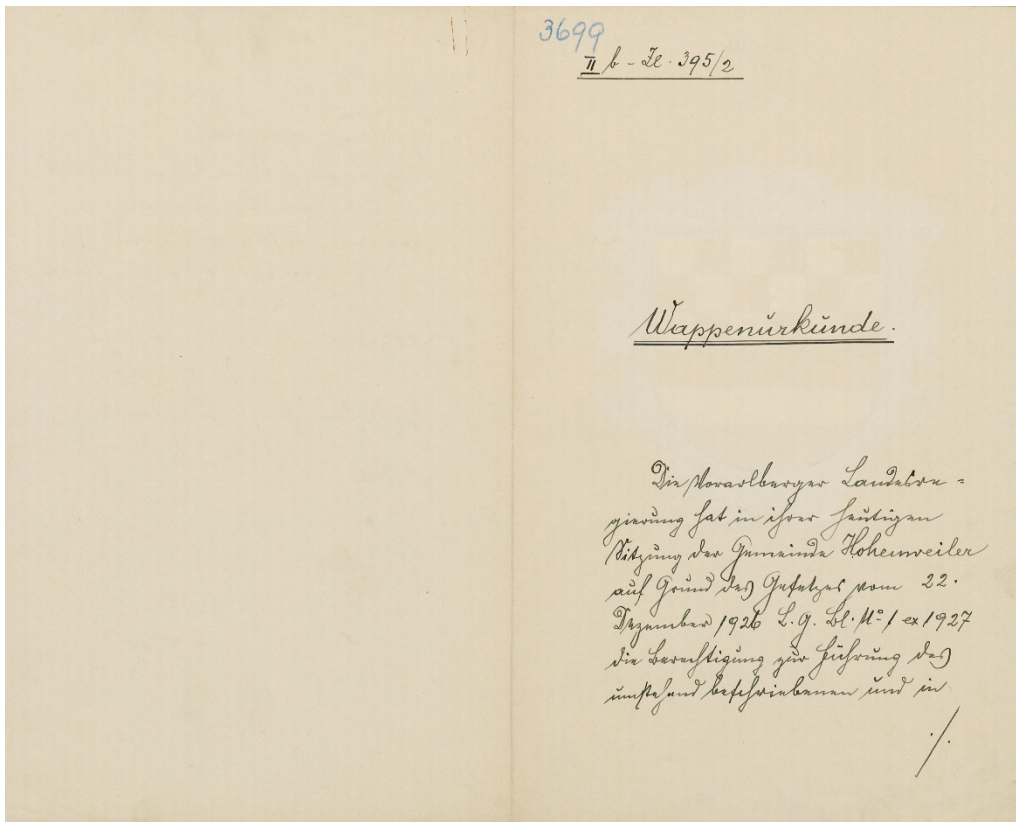 3699
II b - Zl. 395/2
Wappenurkunde.
Die Vorarlberger Landesre-
gierung hat in ihrer heutigen
Sitzung der Gemeinde Hohenweiler
auf Grund des Gesetzes vom 22.
Dezember 1926 L. G. Bl. No 1 ex 1927
die Berechtigung zur Führung des
umstehend beschriebenen und in
./.